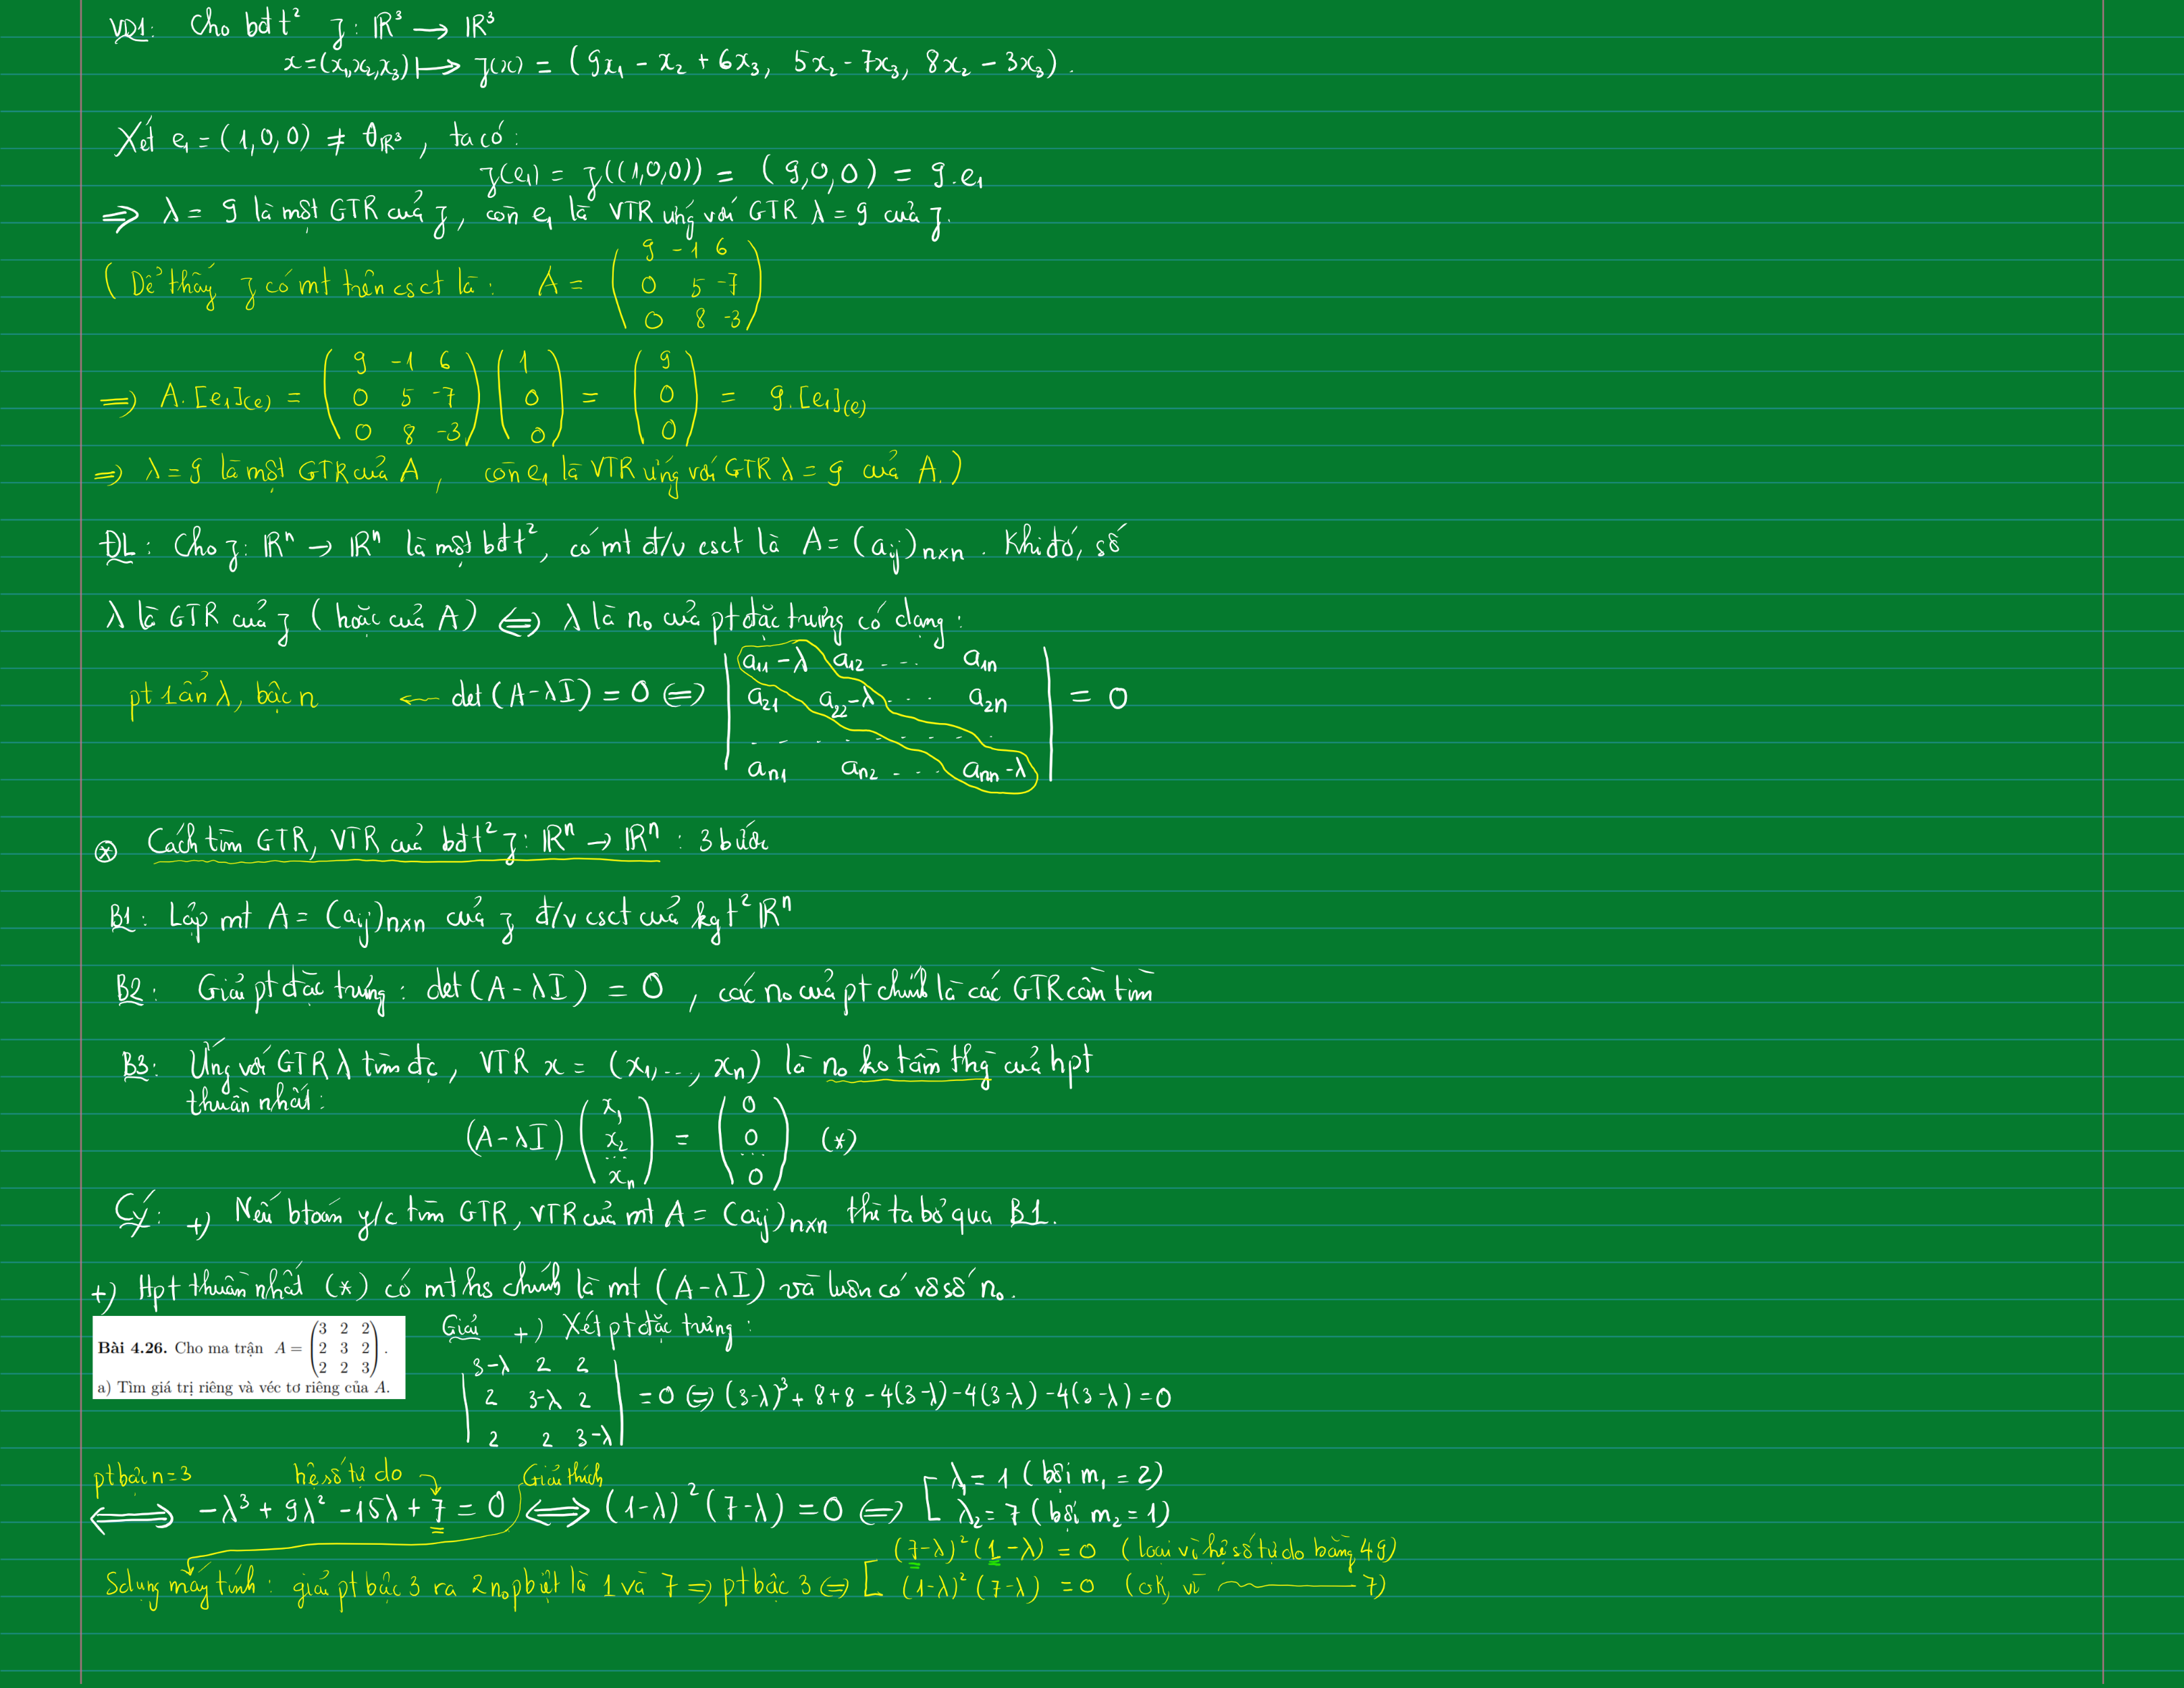 VD1: Cho bđt² f: ℝ³ → ℝ³
x = (x₁, x₂, x₃) ↦ f(x) = (9x₁ - x₂ + 6x₃, 5x₂ - 7x₃, 8x₂ - 3x₃).
Xét e₁ = (1,0,0) ≠ θ_ℝ³, ta có:
f(e₁) = f((1,0,0)) = (9,0,0) = 9.e₁
⇒ λ = 9 là một GTR của f, còn e₁ là VTR ứng với GTR λ = 9 của f.
(Dễ thấy f có mt trên csct là: A = (9 -1 6
0 5 -7
0 8 -3)
⇒ A.[e₁](e) = (9 -1 6; 0 5 -7; 0 8 -3) (1; 0; 0) = (9; 0; 0) = 9.[e₁](e)
⇒ λ = 9 là một GTR của A, còn e₁ là VTR ứng với GTR λ = 9 của A.)
ĐL: Cho f: ℝⁿ → ℝⁿ là một bđt², có mt đ/v csct là A = (aᵢⱼ)n×n. Khi đó, số
λ là GTR của f (hoặc của A) ⇔ λ là n₀ của pt đặc trưng có dạng:
pt 1 ẩn λ, bậc n ← det(A - λI) = 0 ⇔ | a₁₁-λ a₁₂ ... a₁n
a₂₁ a₂₂-λ ... a₂n
. . . . . . . .
an₁ an₂ ... ann-λ | = 0
⊛ Cách tìm GTR, VTR của bđt² f: ℝⁿ → ℝⁿ: 3 bước
B1: Lập mt A = (aᵢⱼ)n×n của f đ/v csct của kgt² ℝⁿ
B2: Giải pt đặc trưng: det(A - λI) = 0, các n₀ của pt chính là các GTR cần tìm
B3: Ứng với GTR λ tìm đc, VTR x = (x₁, ..., xn) là n₀ ko tầm thg của hpt
thuần nhất:
(A - λI) (x₁; x₂; ...; xn) = (0; 0; ...; 0) (*)
Cý: +) Nếu btoán y/c tìm GTR, VTR của mt A = (aᵢⱼ)n×n thì ta bỏ qua B1.
+) Hpt thuần nhất (*) có mt hs chính là mt (A - λI) và luôn có vô số n₀.
Bài 4.26. Cho ma trận A = (3 2 2; 2 3 2; 2 2 3).
a) Tìm giá trị riêng và véc tơ riêng của A.
Giải +) Xét pt đặc trưng:
| 3-λ 2 2
2 3-λ 2
2 2 3-λ | = 0 ⇔ (3-λ)³ + 8 + 8 - 4(3-λ) - 4(3-λ) - 4(3-λ) = 0
pt bậc n=3 hệ số tự do Giải thích
⇔ -λ³ + 9λ² - 15λ + 7 = 0 ⇔ (1-λ)²(7-λ) = 0 ⇔ [ λ₁ = 1 (bội m₁ = 2)
λ₂ = 7 (bội m₂ = 1)
Sdụng máy tính: giải pt bậc 3 ra 2 n₀ pbiệt là 1 và 7 ⇒ pt bậc 3 ⇔ [ (7-λ)²(1-λ) = 0 (loại vì hệ số tự do bằng 49)
(1-λ)²(7-λ) = 0 (ok, vì ———— 7)